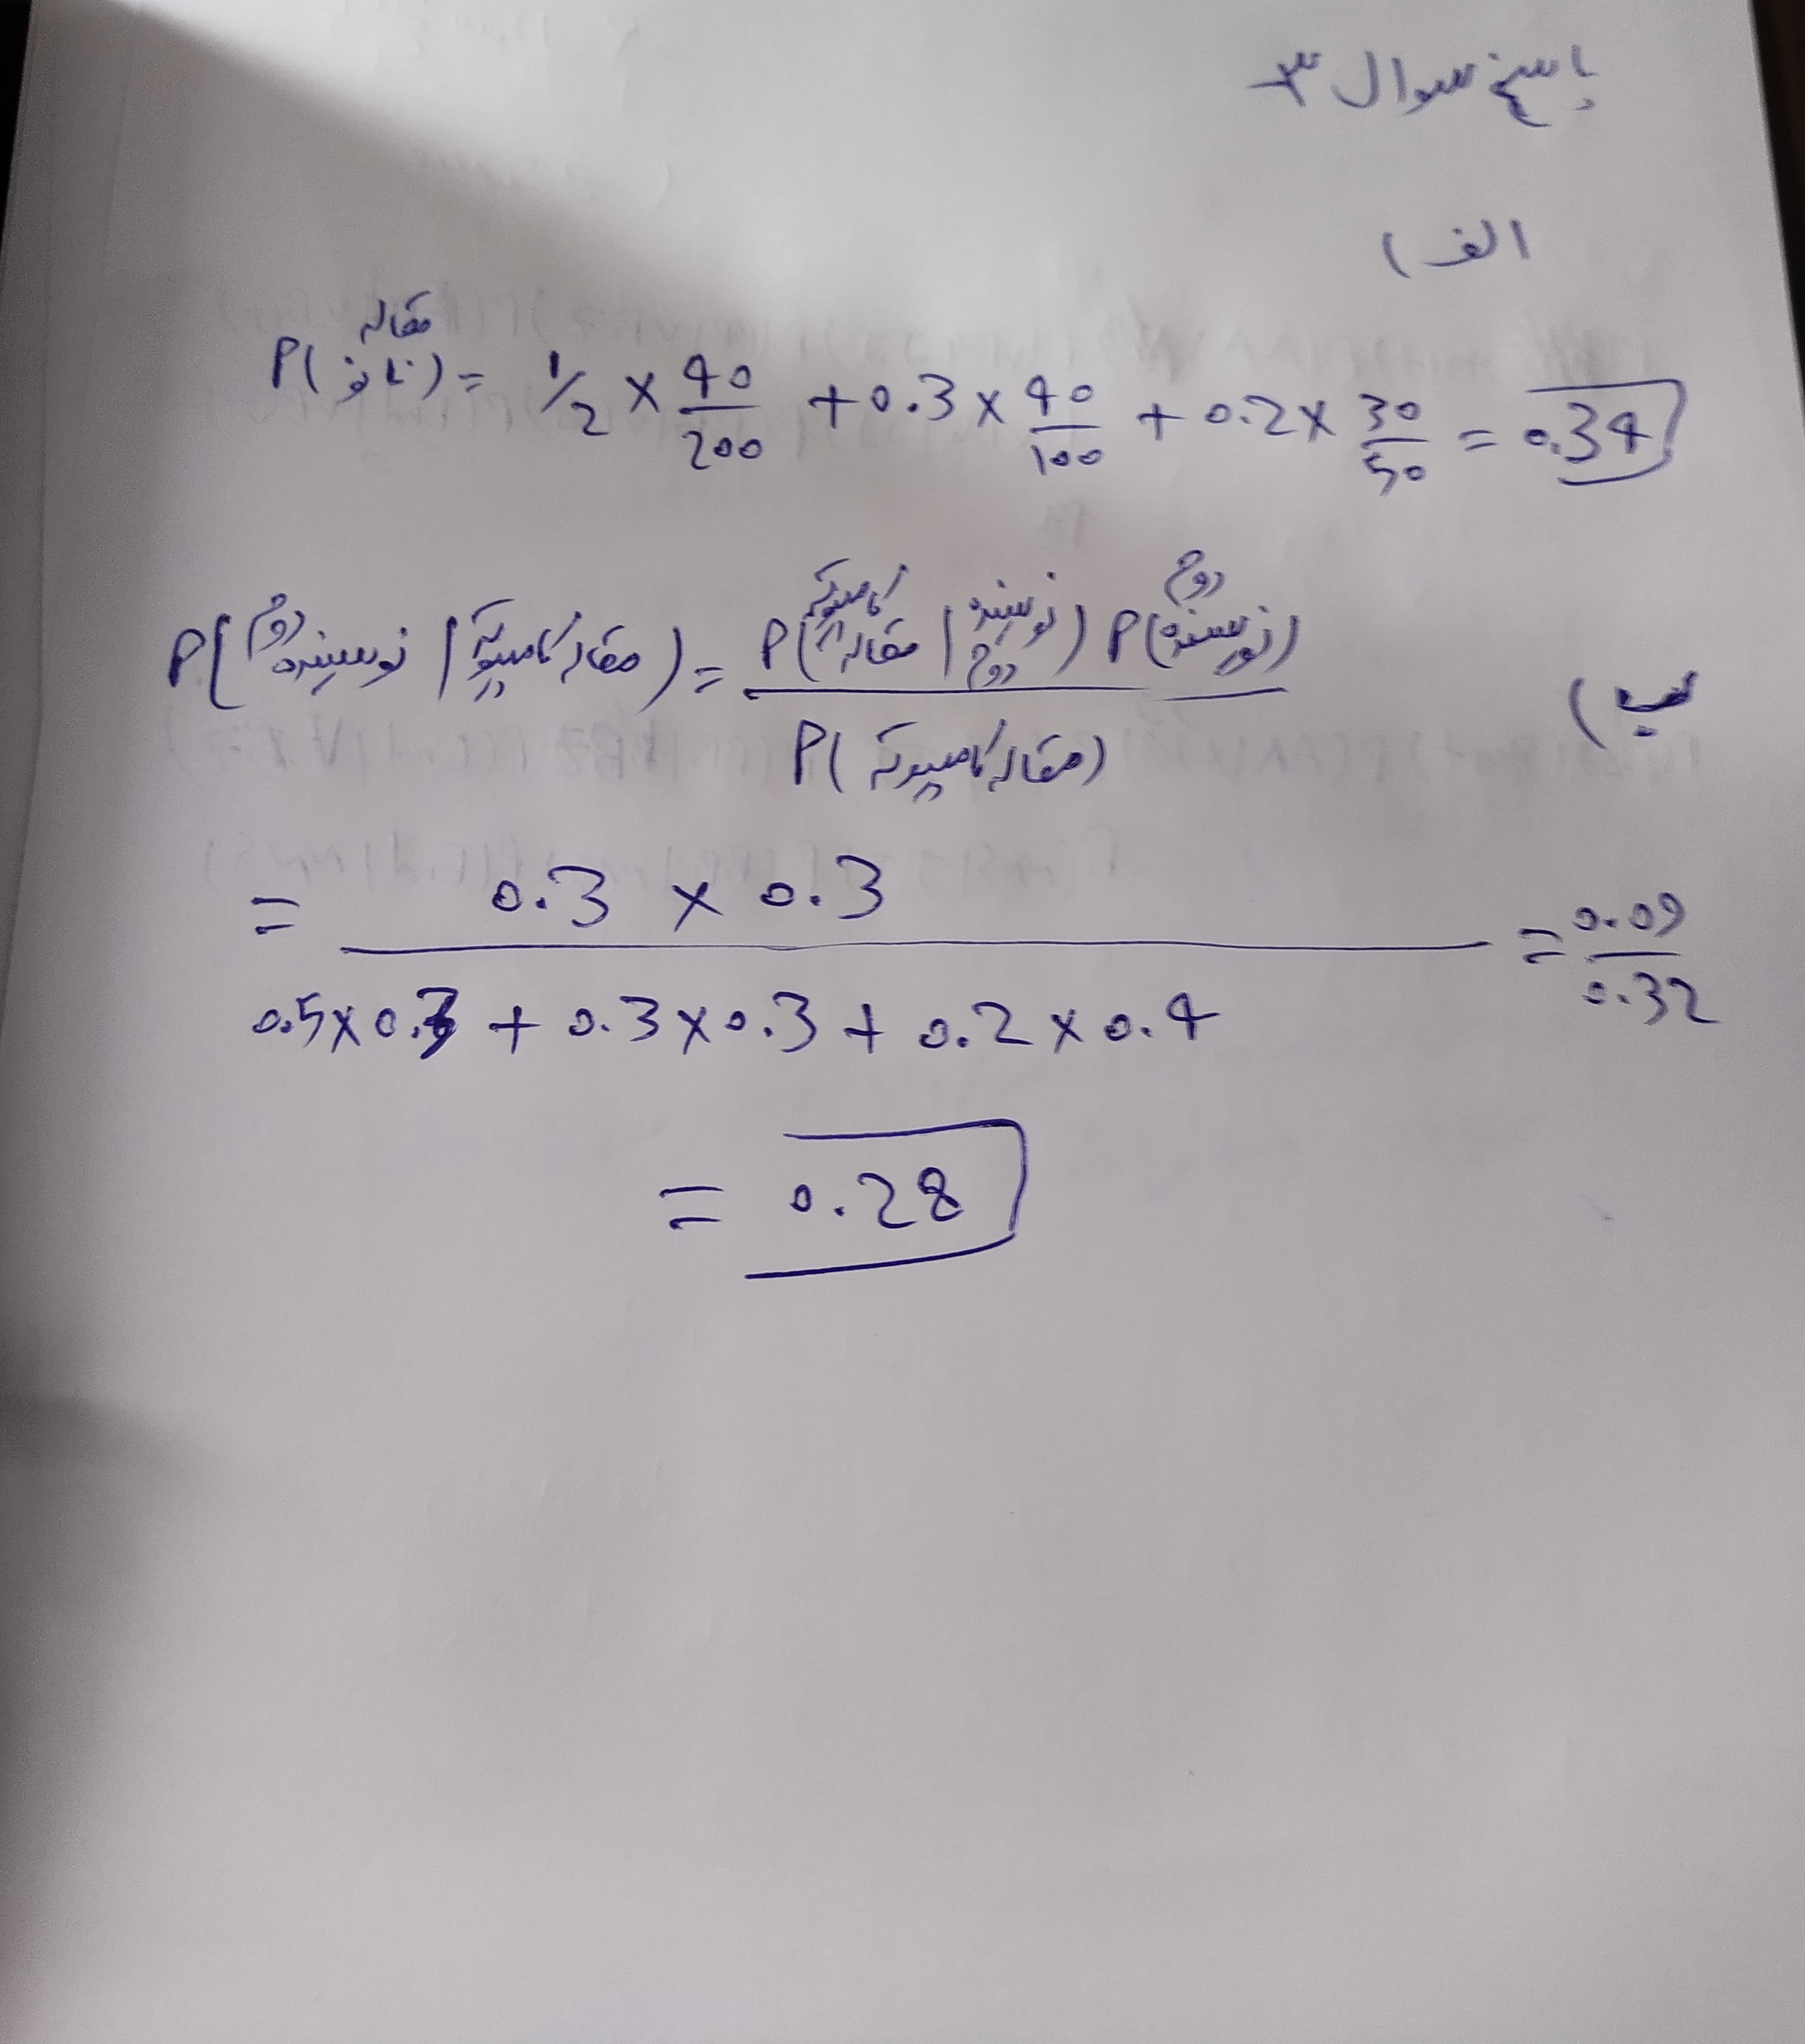 پاسخ سوال ۳
الف)
P(مقاله نانو) = 1/2 × 40/200 + 0.3 × 40/100 + 0.2 × 30/50 = 0.34
ب)
P(نویسنده دوم | مقاله کامپیوتر) = P(مقاله کامپیوتر | نویسنده دوم) P(نویسنده دوم) / P(مقاله کامپیوتر)
= 0.3 × 0.3 / 0.5 × 0.3 + 0.3 × 0.3 + 0.2 × 0.4 = 0.09 / 0.32
= 0.28